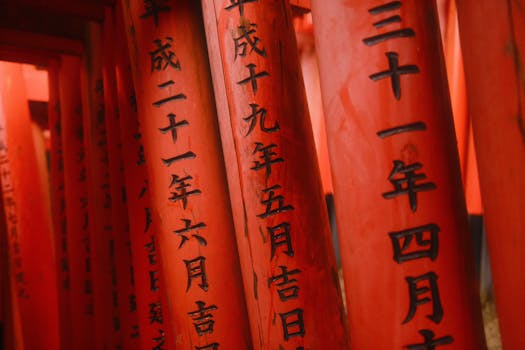 三十一年四月吉
平成十九年五月吉日
平成二十一年六月吉
月吉日